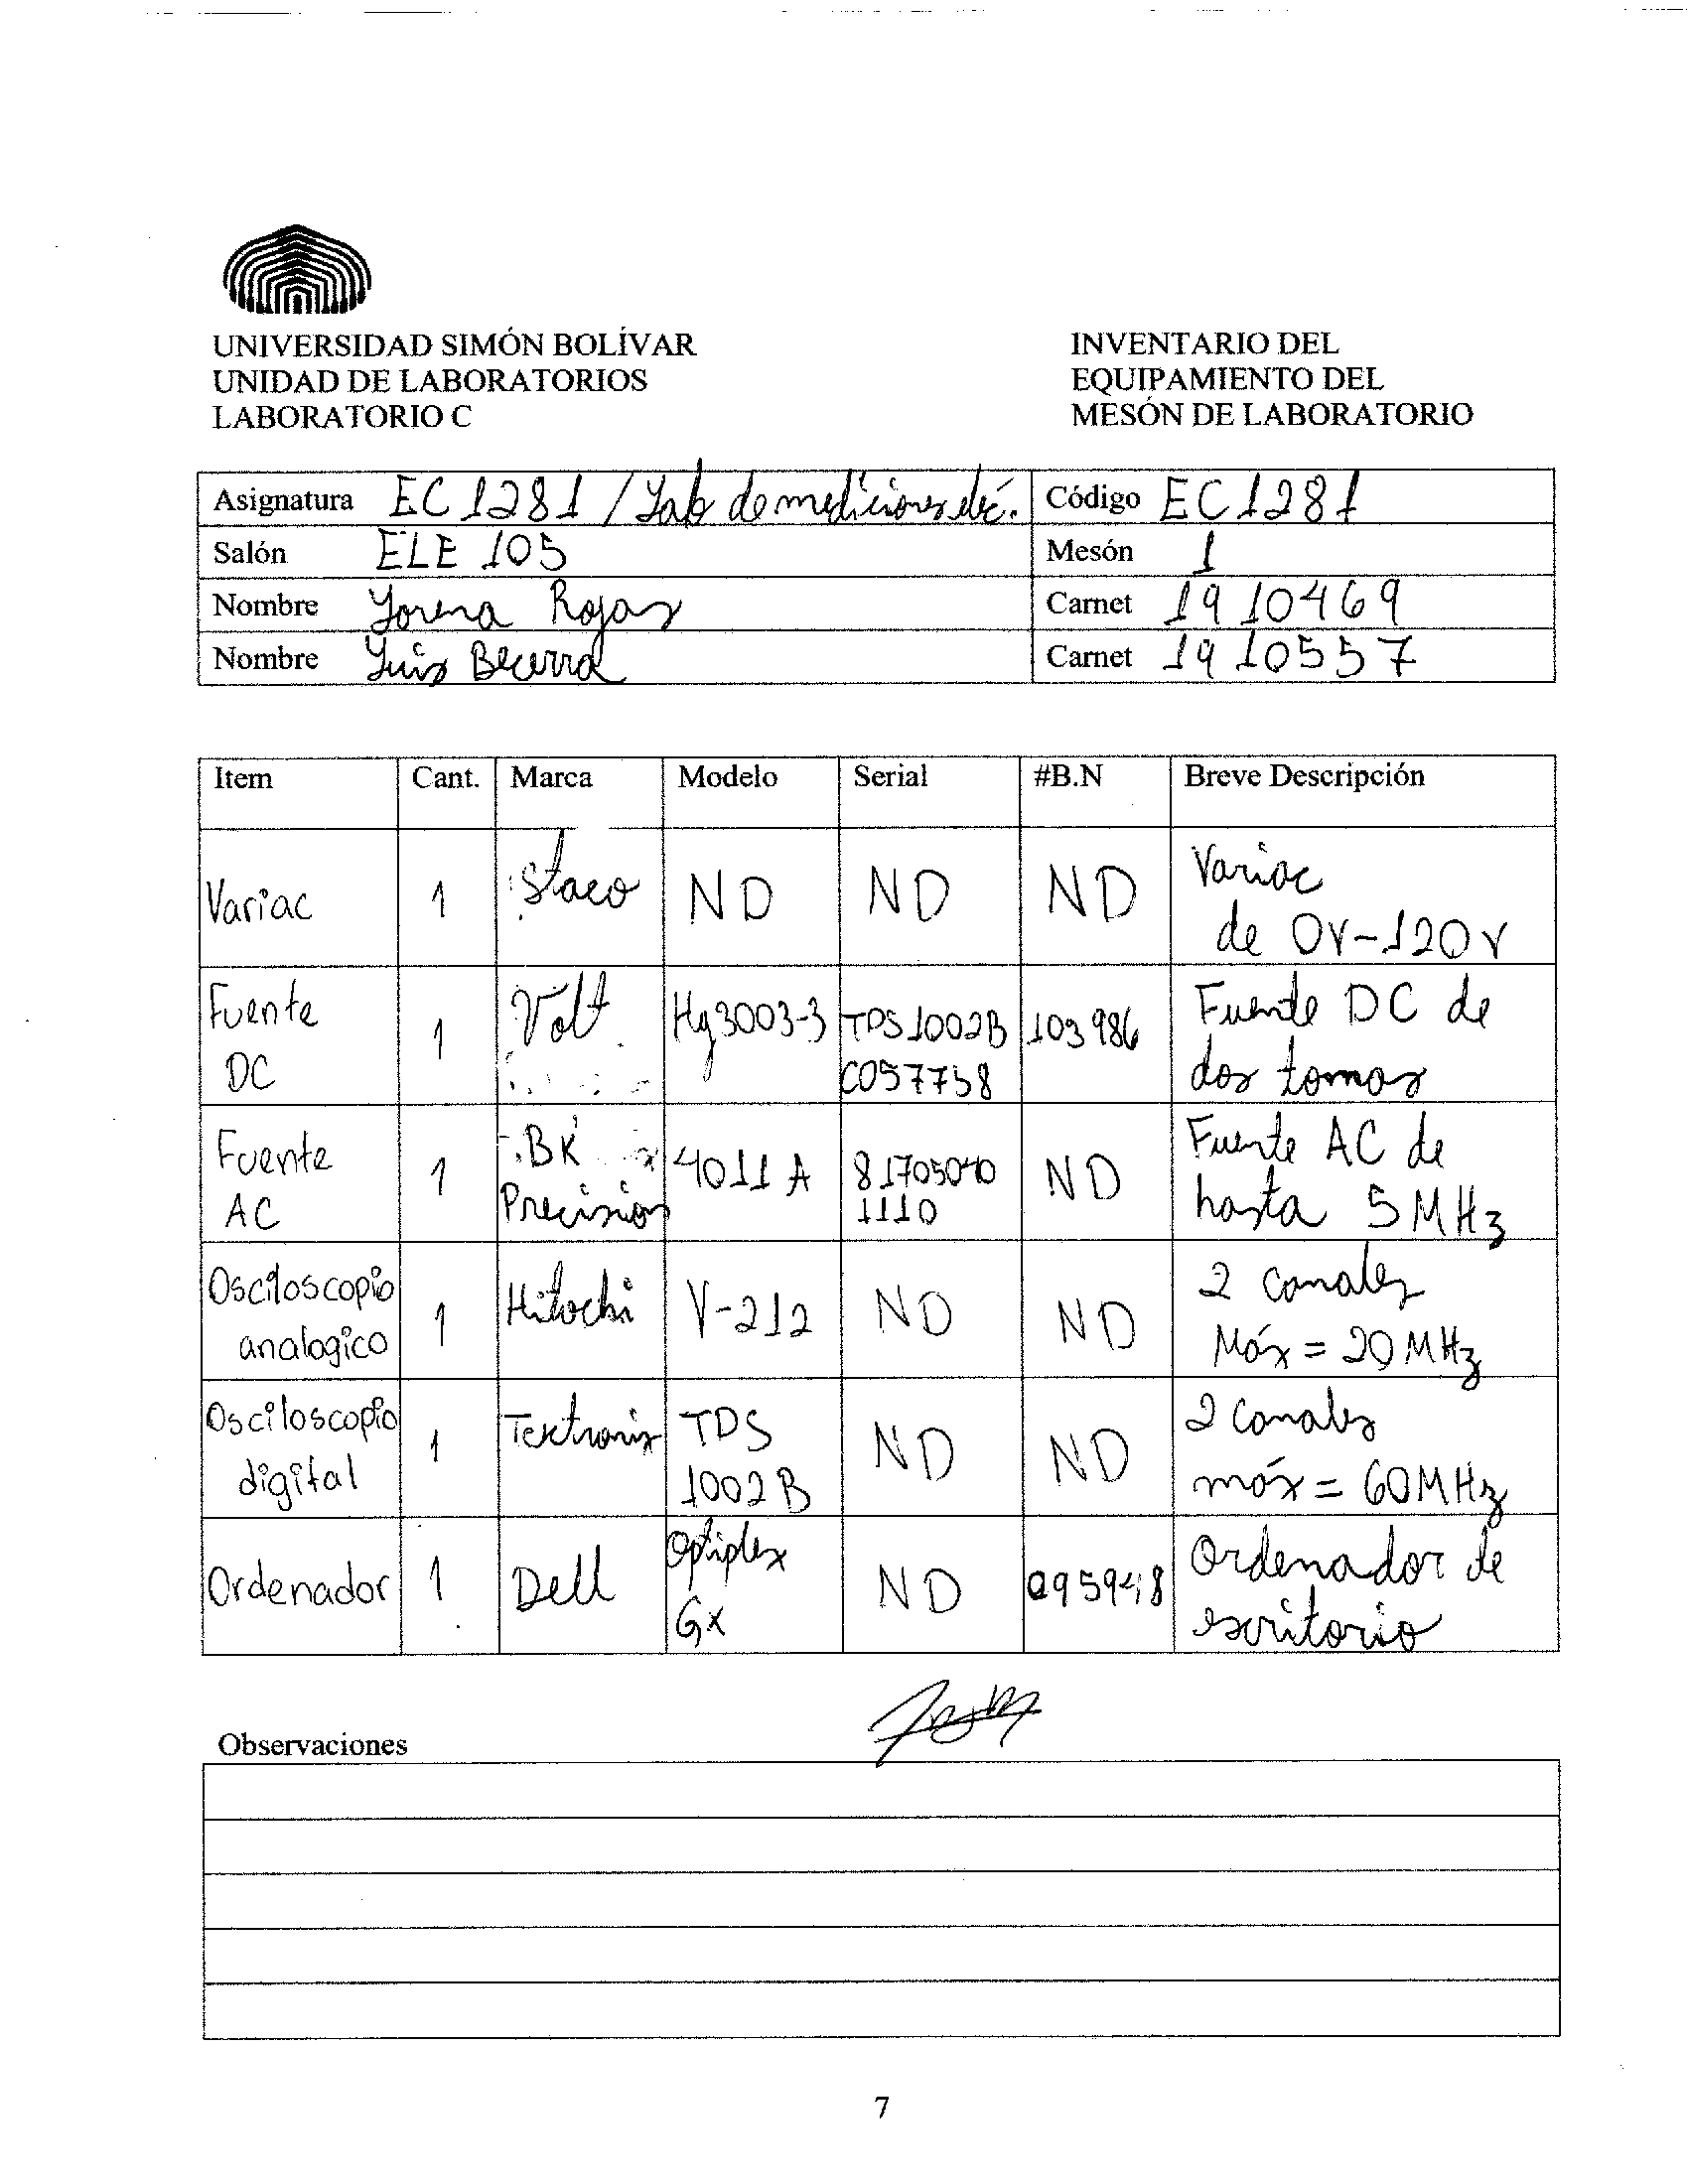 UNIVERSIDAD SIMÓN BOLÍVAR
UNIDAD DE LABORATORIOS
LABORATORIO C
INVENTARIO DEL
EQUIPAMIENTO DEL
MESÓN DE LABORATORIO
Asignatura EC1281 / Lab de mediciones eléc. Código EC1281
Salón ELE 105 Mesón 1
Nombre Lorena Rojas Carnet 1910469
Nombre Luis Becerra Carnet 1910557
Item Cant. Marca Modelo Serial #B.N Breve Descripción
Variac 1 Staco ND ND ND Variac
de 0V-120V
Fuente
DC 1 Volt Hg3003-3 TPS1002B
C057758 103986 Fuente DC de
dos tomas
Fuente
AC 1 BK
Precision 4011A 81705040
1110 ND Fuente AC de
hasta 5MHz
Osciloscopio
analogico 1 Hitachi V-212 ND ND 2 canales
Máx = 20MHz
Osciloscopio
digital 1 Tektronix TDS
1002B ND ND 2 canales
máx = 60MHz
Ordenador 1 Dell Optiplex
Gx ND 095948 Ordenador de
escritorio
Observaciones
7